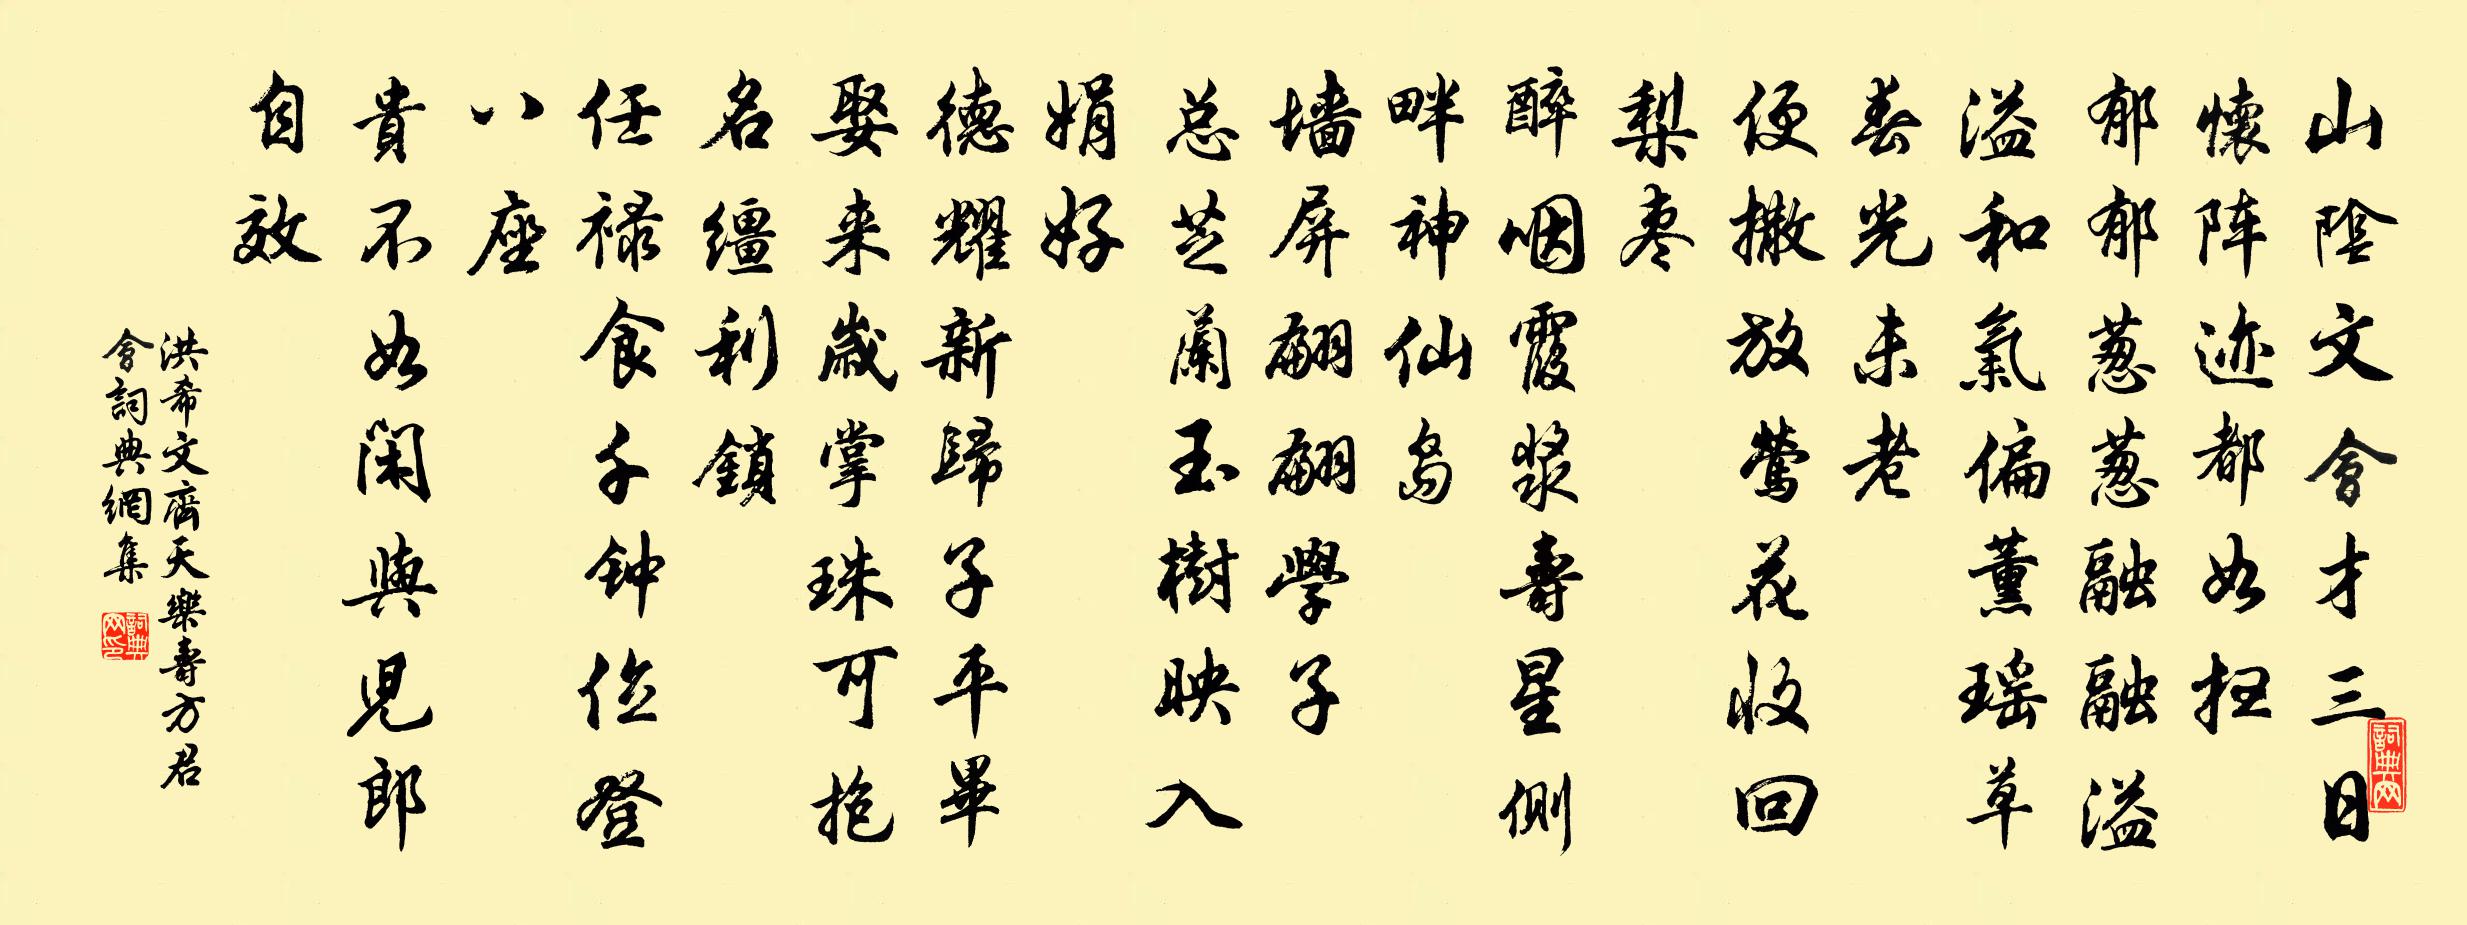 山陰文會才三日
懷阵迹都如扫
郁郁葱葱融融溢
溢和氣偏薰瑶草
春光未老
便撒放莺花收回
梨枣
醉咽霞漿壽星側
畔神仙岛
墙屏翩翩學子
总芝蘭玉樹映入
娟好
德耀新歸子平畢
娶来歲掌珠可抱
名缰利鎖
任禄食千钟位登
八座
貴不如閑與兒郎
自效
洪希文齊天樂壽方君
會詞典網集
詞典网
詞典网印